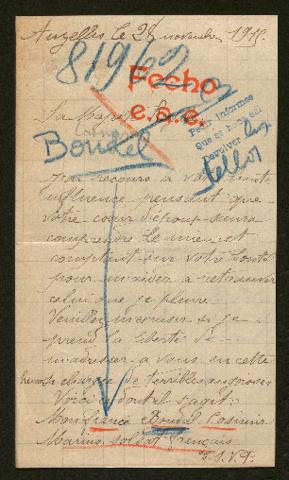 Auzelles le 28 novembre 191
81962
Fecho
e.a.c.
Pedir informes
Que se
devolver
Sello
Sa Majesté
Boudel
J'ai recours à votre
influence pensant que
votre cœur d'époux saura
comprendre le mien et
comptant sur votre bonté
pour m'aider à retrouver
celui que je pleure
Veuillez m'excuser si je
prend la liberté de
m'adresser à vous en cette
heure chargée de terribles angoisses
Voici dont il s'agit:
Mon fiancé Boudal Casimir
Marius, soldat français
T.S.V.P.